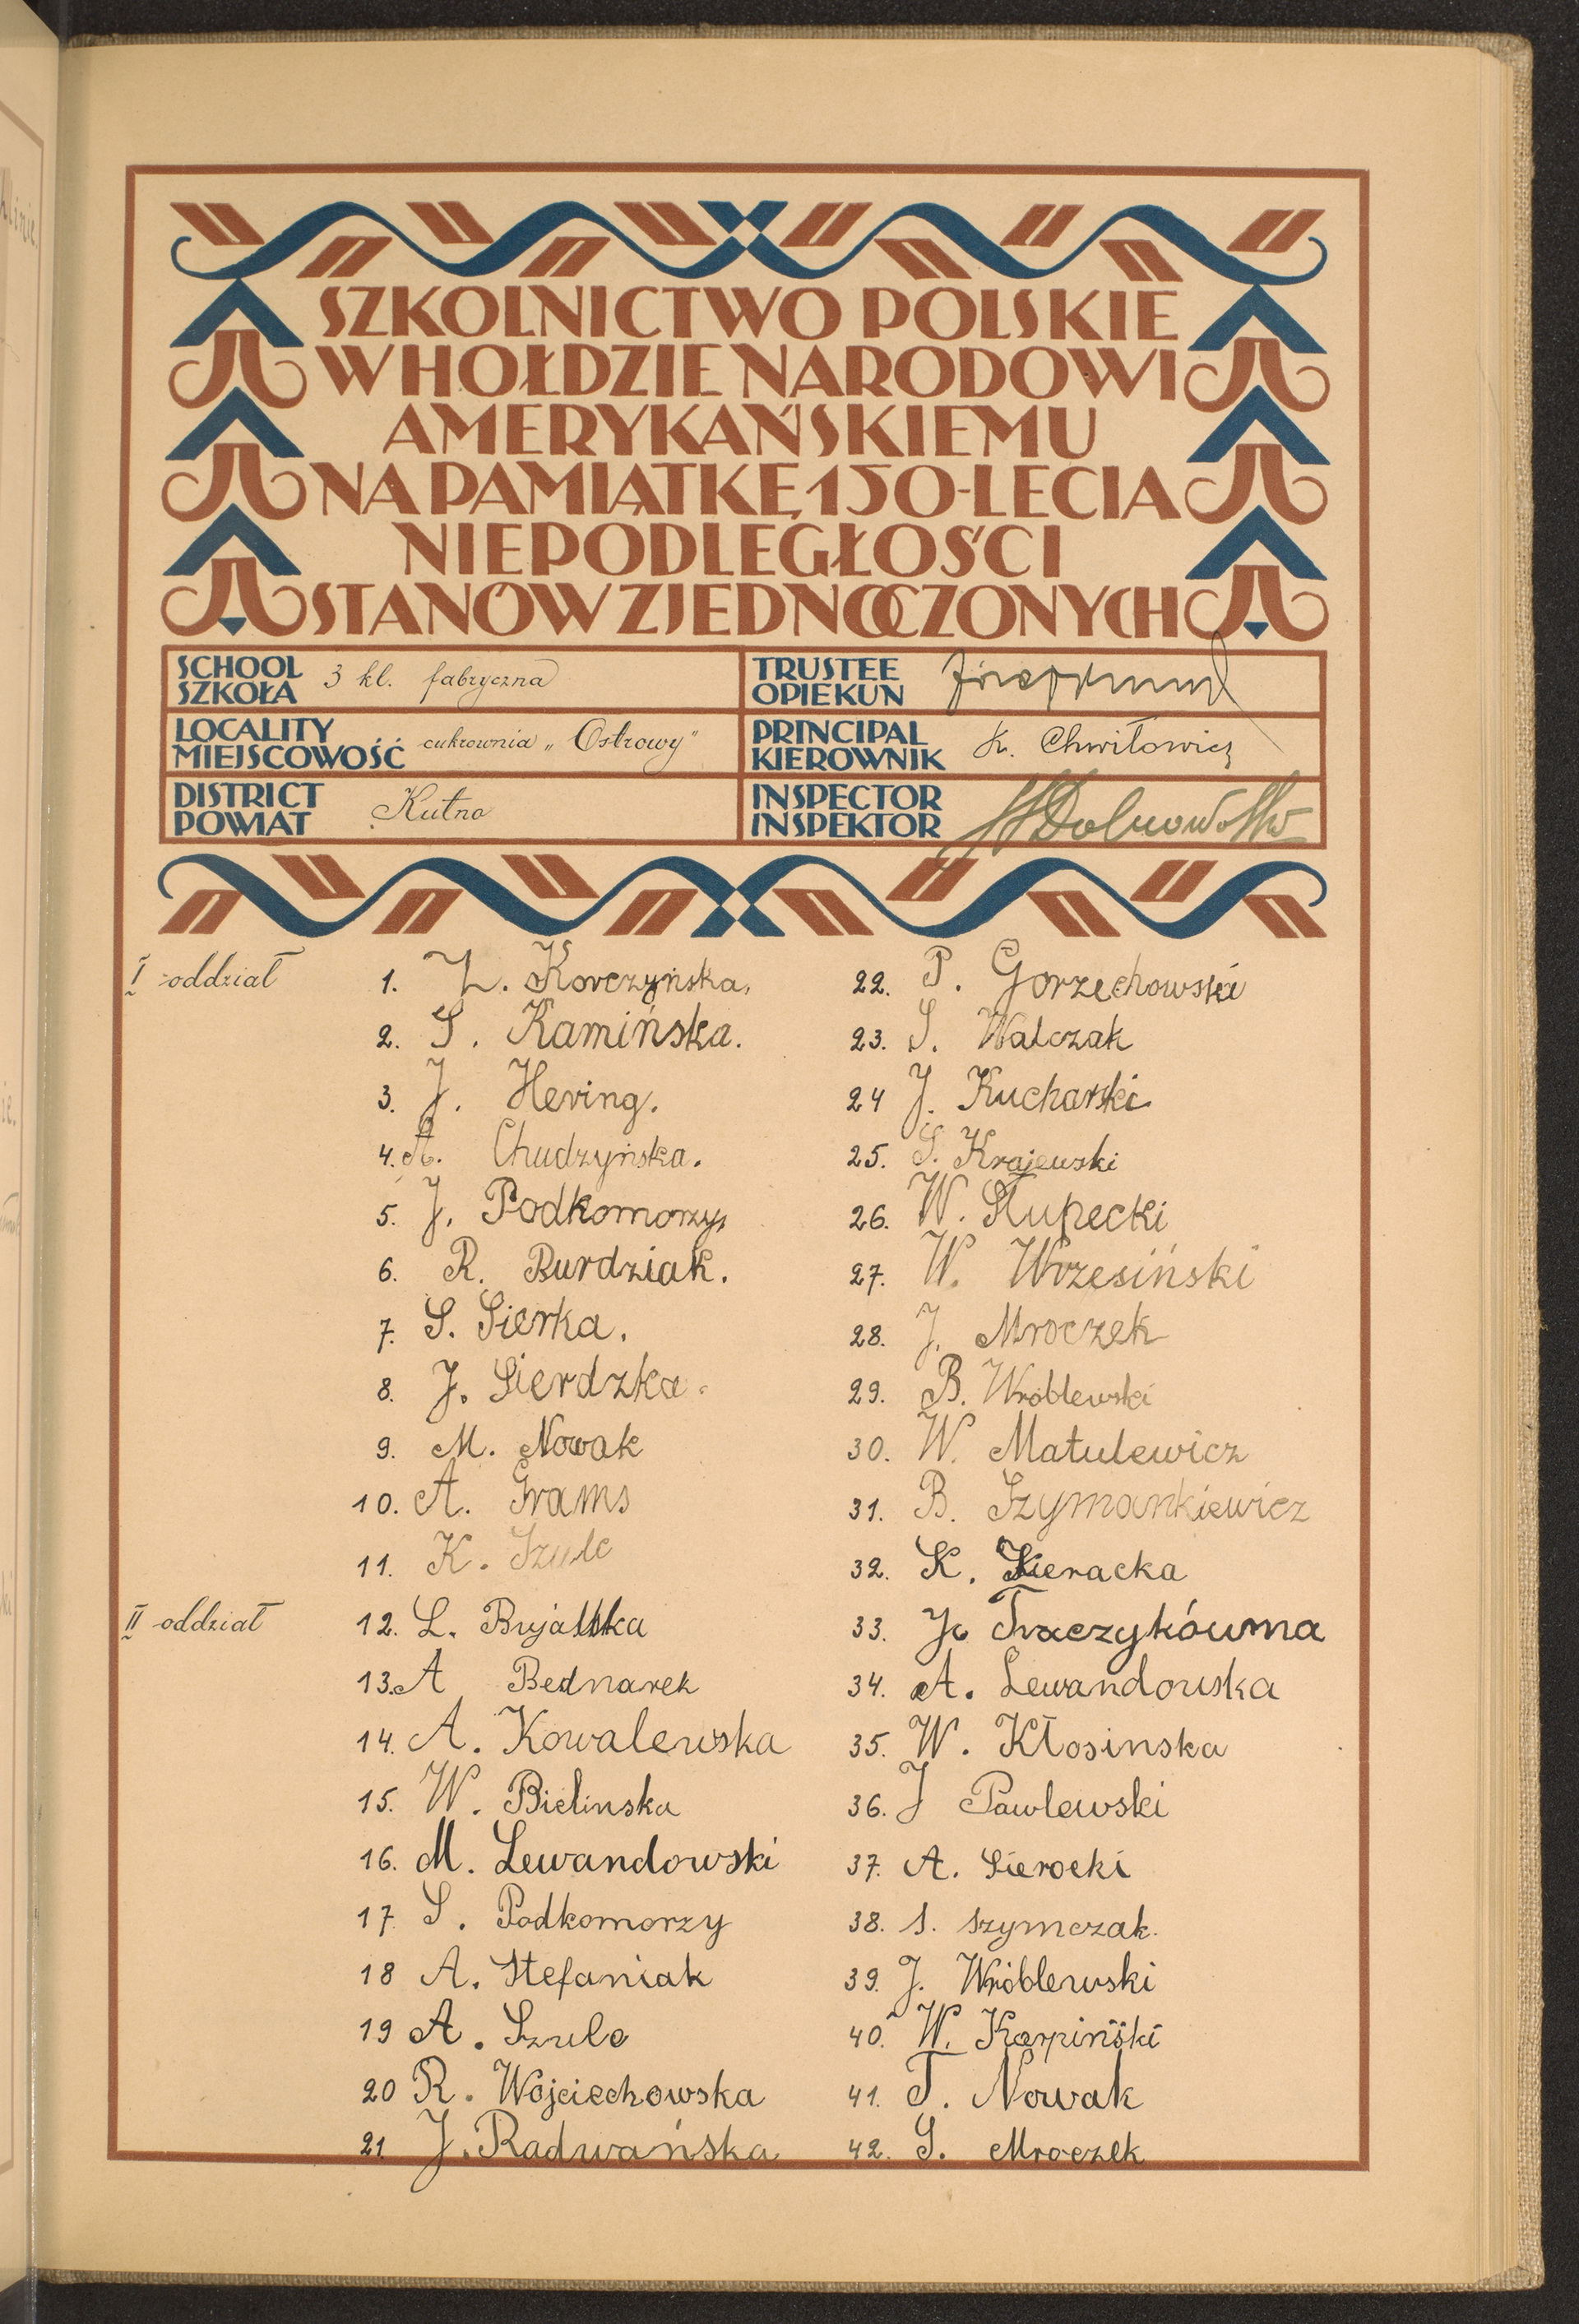 SZKOLNICTWO POLSKIE
W HOŁDZIE NARODOWI
AMERYKAŃSKIEMU
NA PAMIĄTKĘ 150-LECIA
NIEPODLEGŁOŚCI
STANÓW ZJEDNOCZONYCH
SCHOOL
SZKOŁA 3 kl. fabryczna
TRUSTEE
OPIEKUN
LOCALITY
MIEJSCOWOŚĆ cukrownia „Ostrowy"
PRINCIPAL
KIEROWNIK K. Chwiłowicz
DISTRICT
POWIAT Kutno
INSPECTOR
INSPEKTOR
I oddział
1. Z. Korczyńska.
2. S. Kamińska.
3. J. Hering.
4. A. Chudzyńska.
5. J. Podkomorzy.
6. R. Burdziak.
7. S. Sierka.
8. J. Sierdzka.
9. M. Nowak
10. A. Grams
11. K. Szulc
II oddział
12. L. Bujalska
13. A Bednarek
14. A. Kowalewska
15. W. Bielinska
16. M. Lewandowski
17. S. Podkomorzy
18 A. Stefaniak
19 A. Szulc
20 R. Wojciechowska
21 J. Radwańska
22. P. Gorzechowski
23. S. Walczak
24 J. Kucharski
25. S. Krajewski
26. W. Słupecki
27. W. Wrzesiński
28. J. Mroczek
29. B. Wróblewski
30. W. Matulewicz
31. B. Szymankiewicz
32. K. Sieracka
33. J. Traczykówna
34. A. Lewandowska
35. W. Kłosinska
36. J Pawlewski
37. A. Sierocki
38. S. Szymczak.
39. J. Wróblewski
40. W. Karpiński
41. T. Nowak
42. S. Mroczek